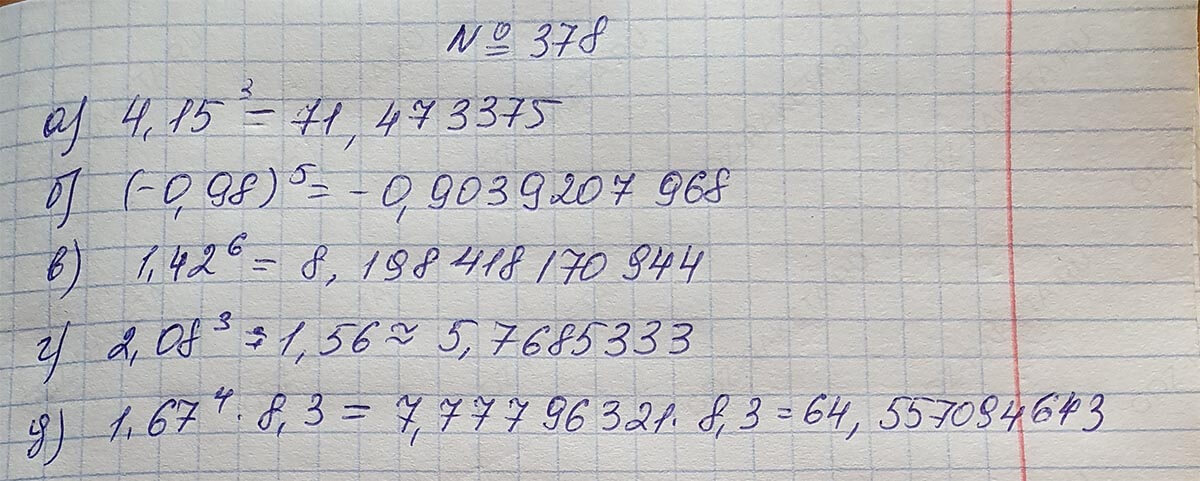 № 378
а) 4,15³ = 71,473375
б) (-0,98)⁵ = -0,9039207968
в) 1,42⁶ = 8,198418170944
г) 2,08³ : 1,56 ≈ 5,7685333
д) 1.67⁴ · 8,3 = 7,77796321 · 8,3 = 64,557094643